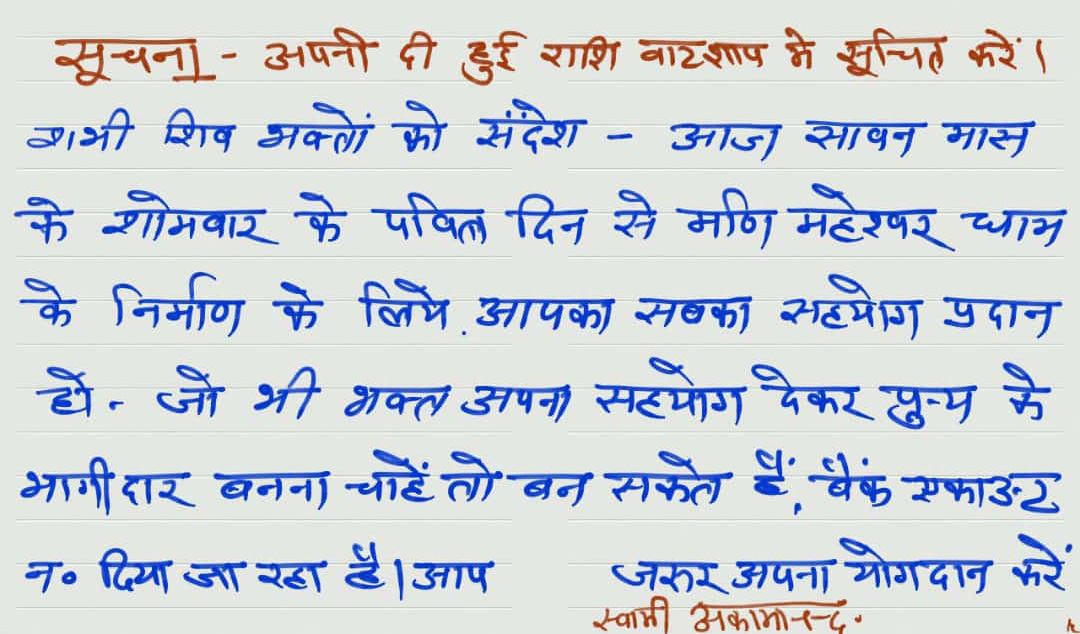 सूचना - अपनी दी हुई राशि वाटशाप मे सूचित करें।
शभी शिव भक्तों को संदेश - आज सावन मास
के शोमवार के पवित्र दिन से मणि महेश्वर धाम
के निर्माण के लिये. आपका सबका सहयोग प्रदान
हो - जो भी भक्त अपना सहयोग देकर पुन्य के
भागीदार बनना चाहें तो बन सकते हैं, बैंक एकाउन्ट
न० दिया जा रहा है। आप जरुर अपना योगदान करें
स्वामी अकामानन्द.